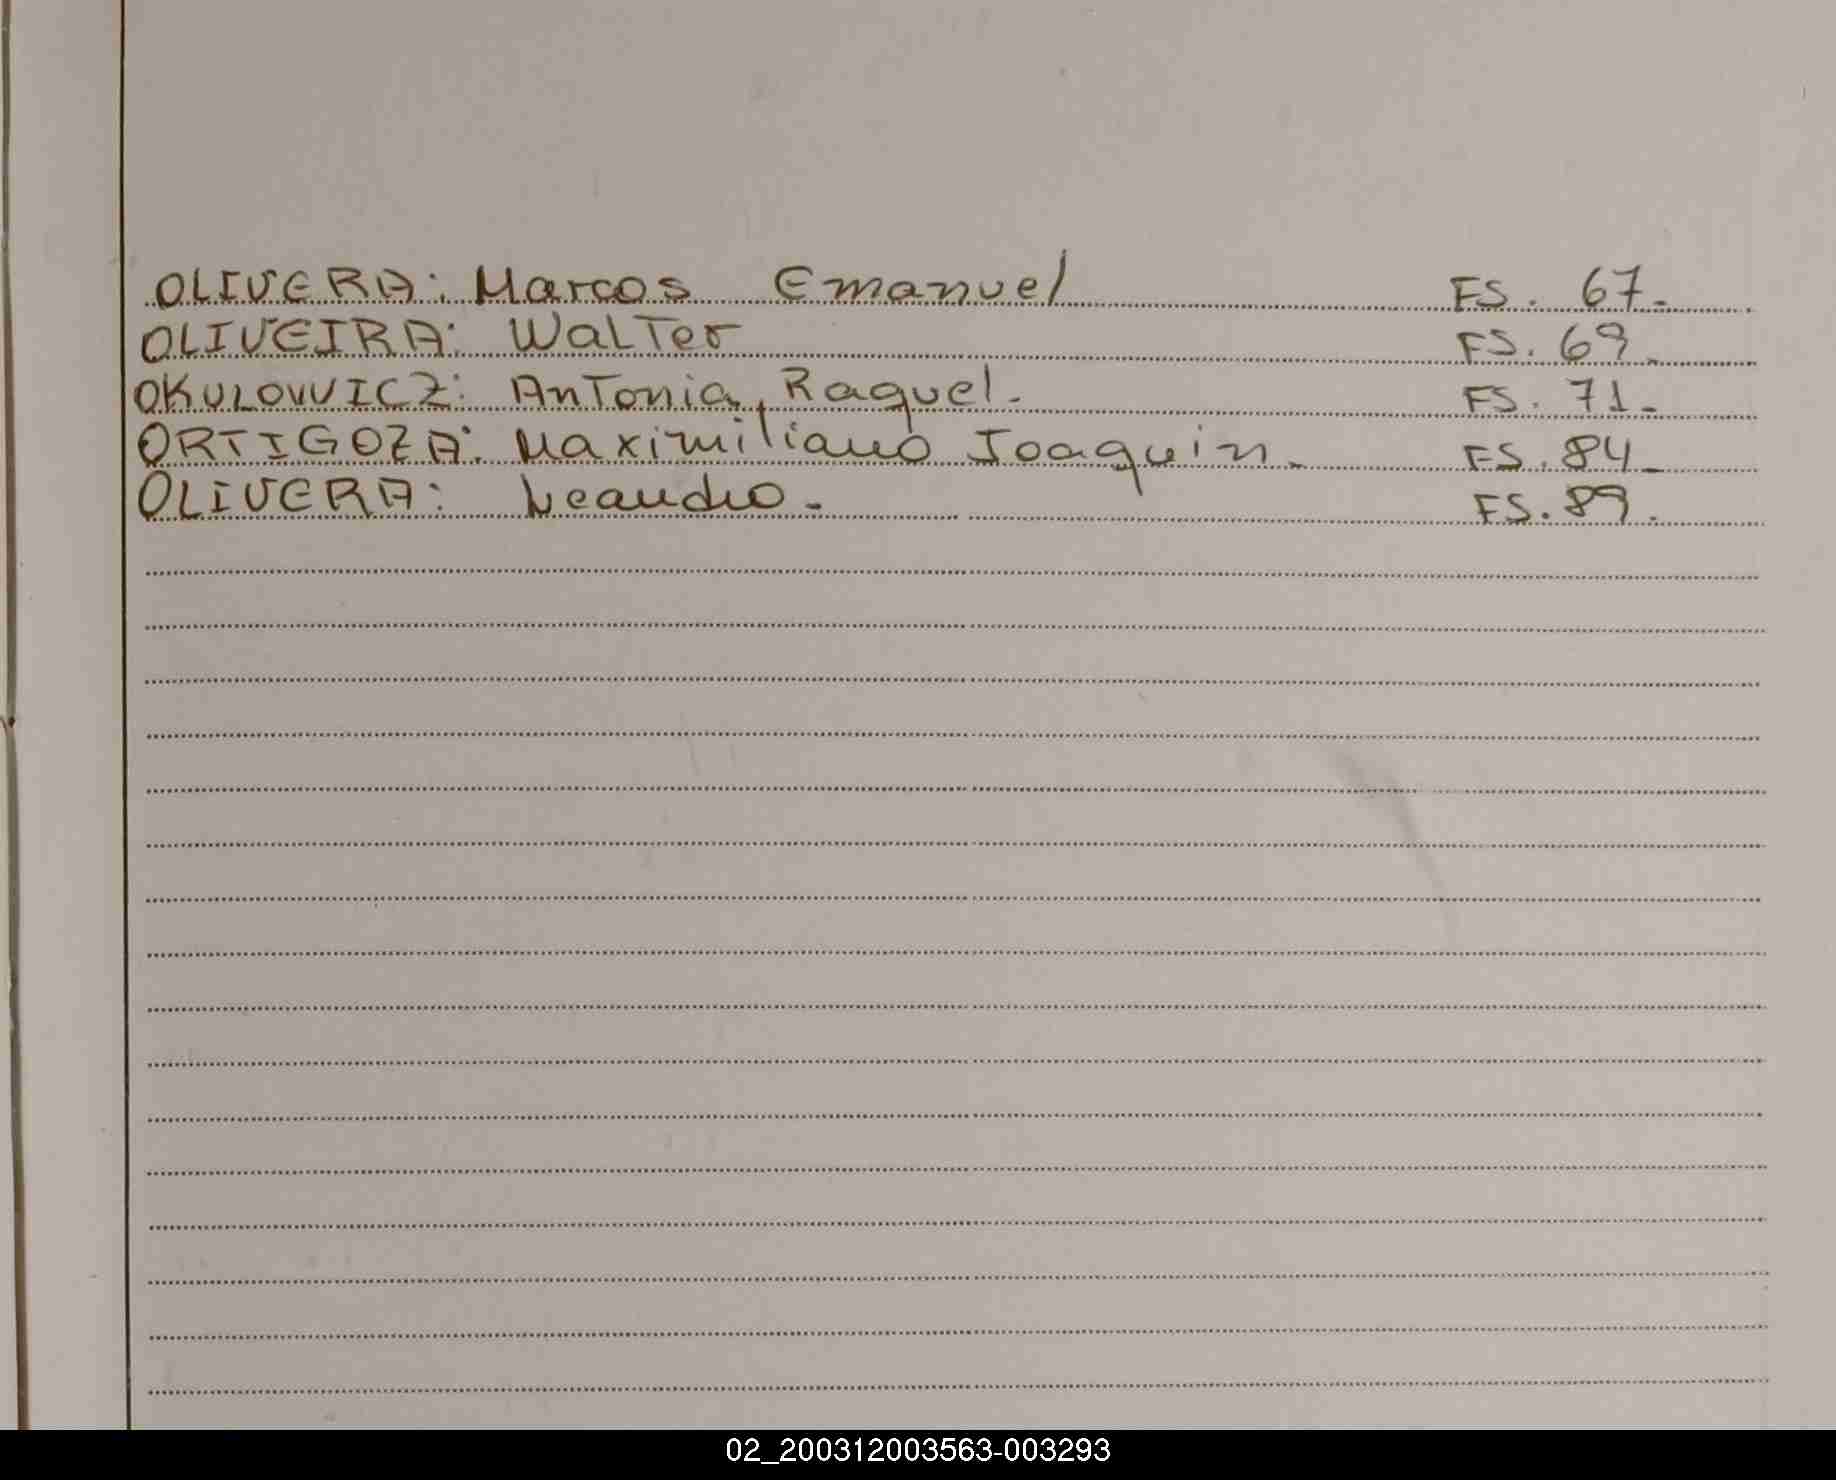 OLIVERA: Marcos Emanuel FS. 67.-
OLIVEIRA: Walter FS. 69.-
OKULOWICZ: Antonia, Raquel.- FS. 71.-
ORTIGOZA: Maximiliano Joaquin.- FS. 84.-
OLIVERA: Leandro.- FS. 89.
02_200312003563-003293